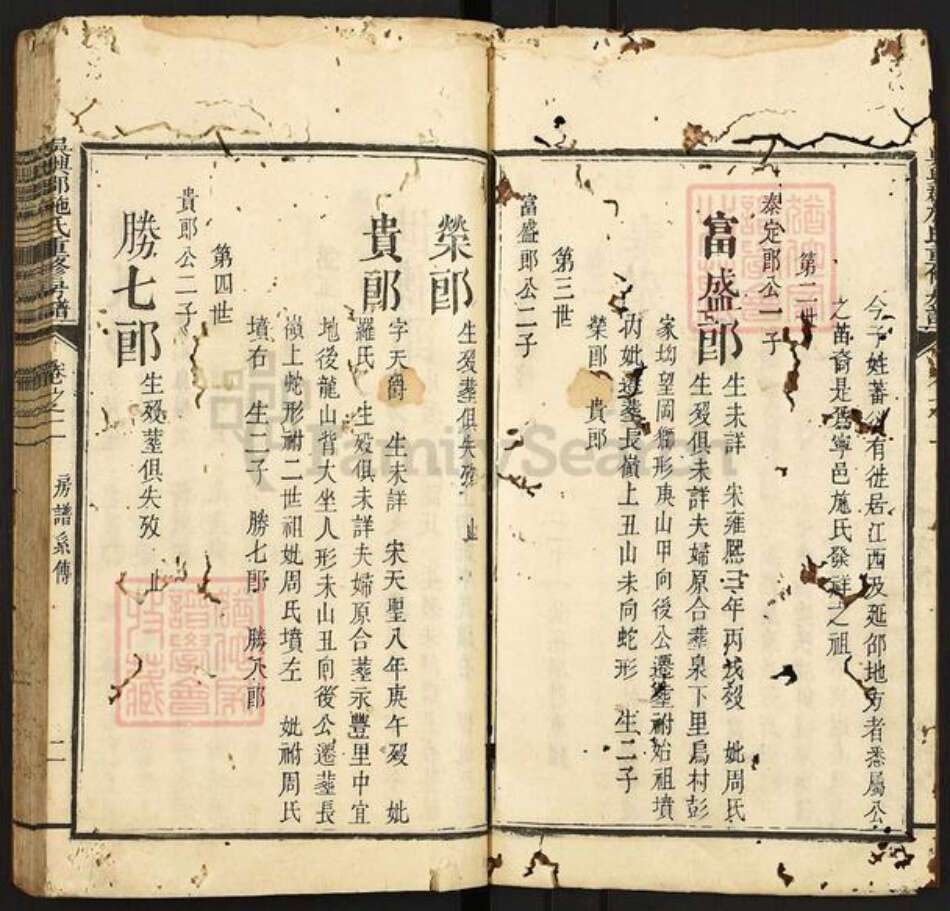 今子姓蕃衍有徙居江西及延邵地方者悉屬公
之苗裔是爲寧邑施氏發祥之祖
第二世
泰定郎公一子
富盛郎 生未詳 宋雍熙三年丙戌歿 妣周氏
生歿俱未詳夫婦原合塟泉下里烏村彭
家坳望岡獅形庚山甲向後公遷塟祔始祖墳
丙妣遷塟長嶺上丑山未向蛇形 生二子
榮郎 貴郎
第三世
富盛郎公二子
榮郎 生歿塟俱失攷 止
貴郎 字天爵 生未詳 宋天聖八年庚午歿 妣
羅氏 生歿俱未詳夫婦原合塟永豐里中宜
地後龍山背大坐人形未山丑向後公遷塟長
嶺上蛇形祔二世祖妣周氏墳左 妣祔周氏
墳右 生二子 勝七郎 勝八郎
第四世
貴郎公二子
勝七郎 生歿塟俱失攷 止
吳興郡施氏重修房譜 卷之二 房譜系傳 二
FamilySearch